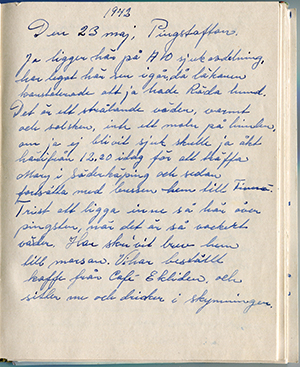 1943
Den 23 maj, Pingstafton.
Ja ligger här på A 10 sjukavdelning,
har legat här sen igår då läkaren
konstaterade att ja hade Röda hund.
Det är ett strålande väder, varmt
och solsken, inte ett moln på himlen,
om ja ej blivit sjuk skulle ja åkt
härifrån 12.20 idag för att träffa
Mary i Söderköping och sedan
fortsätta med bussen hem till
Trist att ligga inne så här över
pingsten, när det är så vackert
väder. Har skrivit brev hem
till morsan. Vi har beställt
kaffe från Café Ekliden, och
sitter nu och dricker i skymningen.